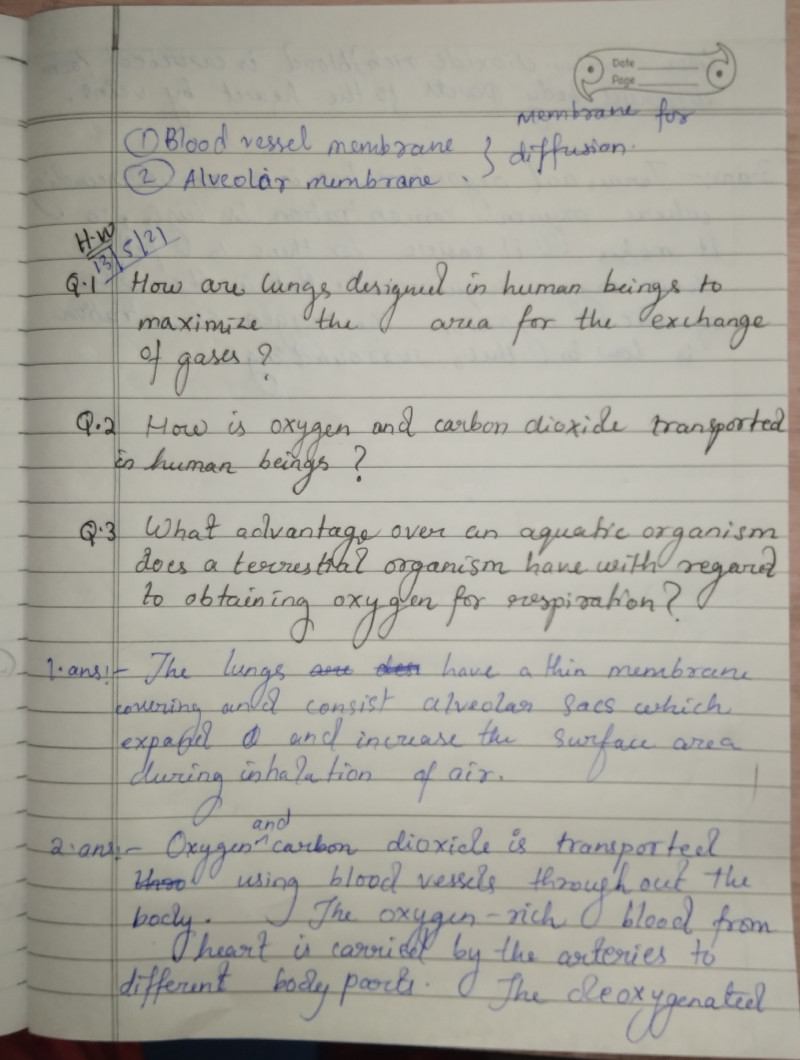 Date
Page
Membrane for
① Blood vessel membrane } diffusion.
② Alveolar membrane.
H.W
13/5/21
Q.1 How are lungs designed in human beings to
maximize the area for the exchange
of gases?
Q.2 How is oxygen and carbon dioxide transported
in human beings?
Q.3 What advantage over an aquatic organism
does a terrestrial organism have with regard
to obtaining oxygen for respiration?
1.ans:- The lungs are den have a thin membrane
covering and consist alveolar sacs which
expand and increase the surface area
during inhalation of air.
and
2.ans:- Oxygen ^ carbon dioxide is transported
using blood vessels throughout the
body. The oxygen-rich blood from
heart is carried by the arteries to
different body parts. The deoxygenated